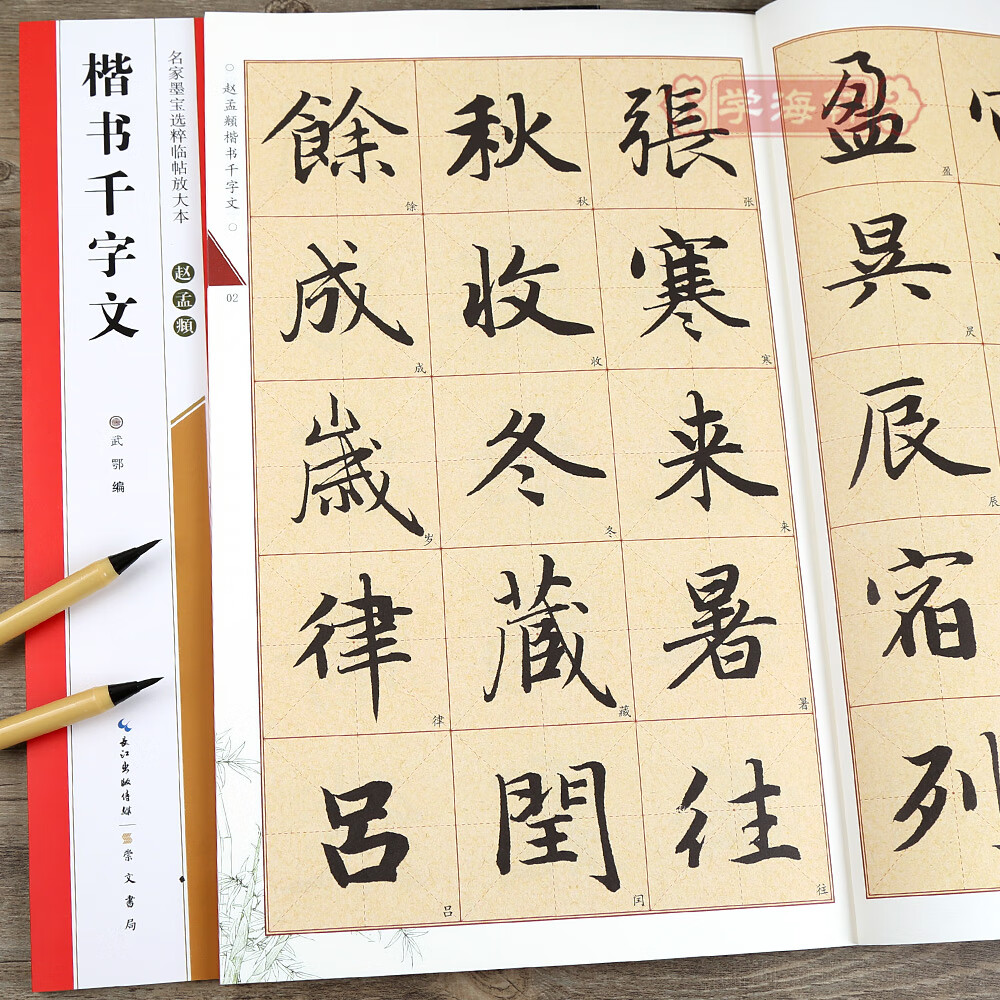 楷书千字文
名家墨宝选粹临帖放大本
赵孟頫
武鄂 编
长江出版传媒
崇文書局
○赵孟頫楷书千字文○
02
張寒来暑往
张寒来暑往
秋收冬藏閏
秋收冬藏闰
餘成歲律呂
成岁律吕
盈昃辰宿列
盈昃辰
学海